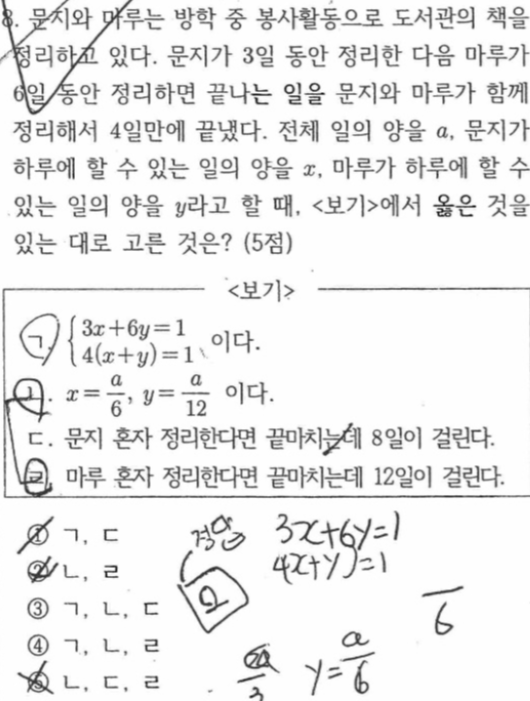 8. 문지와 마루는 방학 중 봉사활동으로 도서관의 책을
정리하고 있다. 문지가 3일 동안 정리한 다음 마루가
6일 동안 정리하면 끝나는 일을 문지와 마루가 함께
정리해서 4일만에 끝냈다. 전체 일의 양을 a, 문지가
하루에 할 수 있는 일의 양을 x, 마루가 하루에 할 수
있는 일의 양을 y라고 할 때, <보기>에서 옳은 것을
있는 대로 고른 것은? (5점)
<보기>
ㄱ. { 3x+6y=1
4(x+y)=1 이다.
ㄴ. x=a/6, y=a/12 이다.
ㄷ. 문지 혼자 정리한다면 끝마치는데 8일이 걸린다.
ㄹ. 마루 혼자 정리한다면 끝마치는데 12일이 걸린다.
① ㄱ, ㄷ
② ㄴ, ㄹ
③ ㄱ, ㄴ, ㄷ
④ ㄱ, ㄴ, ㄹ
⑤ ㄴ, ㄷ, ㄹ
3x+6y=1
4(x+y)=1
2
6
y=a/6
3